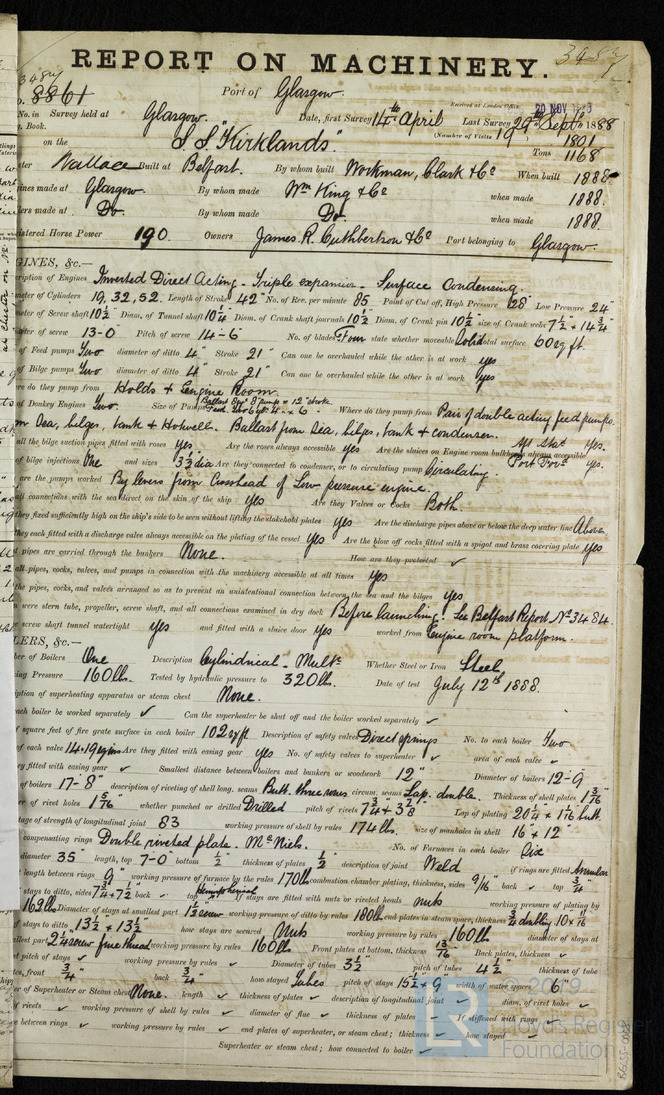 REPORT ON MACHINERY.
8861
Port of Glasgow.
Received at London Office 20 NOV
No. in Survey held at Glasgow. Date, first Survey 14th April Last Survey 29th Sept 1888
Book. (Number of Visits 19
on the S.S. "Kirklands" Tons 1801 1168
Wallace Built at Belfast. By whom built Workman, Clark & Co When built 1888.
made at Glasgow. By whom made Wm King & Co when made 1888.
made at Do. By whom made Do. when made 1888.
Horse Power 190 Owners James. R. Cuthbertson & Co Port belonging to Glasgow.
GINES, &c.—
of Engines Inverted Direct Acting - Triple expansion - Surface Condensing.
of Cylinders 19, 32, 52. Length of Stroke 42" No. of Rev. per minute 85 Point of Cut off, High Pressure 28" Low Pressure 24"
of Screw shaft 10½" Diam. of Tunnel shaft 10¼ Diam. of Crank shaft journals 10½ Diam. of Crank pin 10½ size of Crank webs 7½ × 14¾
of screw 13-0" Pitch of screw 14-6" No. of blades Four state whether moveable Solid total surface 60 sq ft.
of Feed pumps Two diameter of ditto 4" Stroke 21" Can one be overhauled while the other is at work yes
of Bilge pumps Two diameter of ditto 4" Stroke 21" Can one be overhauled while the other is at work yes
do they pump from Holds & Engine Room.
of Donkey Engines Two. Size of Pumps Where do they pump from Pair of double acting feed pumps.
Sea, bilges, tank & Hotwell. Ballast from sea, bilges, tank & condenser.
all the bilge suction pipes fitted with roses yes Are the roses always accessible yes Are the sluices on Engine room bulkheads always accessible yes.
of bilge injections One and sizes 3½ dia Are they connected to condenser, or to circulating pump Circulating.
are the pumps worked By levers from Crosshead of Low pressure engine.
all connections with the sea direct on the skin of the ship yes Are they Valves or Cocks Both.
they fixed sufficiently high on the ship's side to be seen without lifting the stokehold plates yes Are the discharge pipes above or below the deep water line Above
they each fitted with a discharge valve always accessible on the plating of the vessel yes Are the blow off cocks fitted with a spigot and brass covering plate yes
pipes are carried through the bunkers None How are they protected ✓
all pipes, cocks, valves, and pumps in connection with the machinery accessible at all times yes
the pipes, cocks, and valves arranged so as to prevent an unintentional connection between the sea and the bilges yes
were stern tube, propeller, screw shaft, and all connections examined in dry dock Before launching. See Belfast Report No 3484.
screw shaft tunnel watertight yes and fitted with a sluice door yes worked from Engine room platform.
LERS, &c.—
of Boilers One Description Cylindrical - Multr Whether Steel or Iron Steel
Pressure 160 lb. Tested by hydraulic pressure to 320 lb. Date of test July 12th 1888.
of superheating apparatus or steam chest None.
each boiler be worked separately ✓ Can the superheater be shut off and the boiler worked separately ✓
square feet of fire grate surface in each boiler 102 sq ft Description of safety valves Direct springs No. to each boiler Two
of each valve 14.19 sq ins Are they fitted with easing gear yes No. of safety valves to superheater ✓ area of each valve ✓
fitted with easing gear ✓ Smallest distance between boilers and bunkers or woodwork 12" Diameter of boilers 12-9"
of boilers 17-8" description of riveting of shell long. seams Butt. three rows circum. seams Lap. double. Thickness of shell plates 1 3/16"
of rivet holes 1 5/16" whether punched or drilled Drilled pitch of rivets 7¾ + 3⅜ Lap of plating
of strength of longitudinal joint 83 working pressure of shell by rules 174 lb. size of manholes in shell 16" × 12"
compensating rings Double riveted plate. McNiels. No. of Furnaces in each boiler Six
diameter 35" length, top 7-0" bottom ½" thickness of plates ½ description of joint Weld if rings are fitted Annular
length between rings 9" working pressure of furnace by the rules 170 lb combustion chamber plating, thickness, sides 9/16" back ✓ top ¾"
stays to ditto, sides 7¾ + 7½ back ✓ top Hemispherical If stays are fitted with nuts or riveted heads nuts working pressure of plating by
162 lb Diameter of stays at smallest part 1½ screw working pressure of ditto by rules 180 lb end plates in steam space, thickness ¾ doubling 10 × 11/16
of stays to ditto 13½ × 13½" how stays are secured Nuts working pressure by rules 160 lb diameter of stays at
part 2¼ screw fine thread working pressure by rules 160 lb Front plates at bottom, thickness 13/16 Back plates, thickness ✓
pitch of stays ✓ working pressure by rules ✓ Diameter of tubes 3½" pitch of tubes 4½ thickness of tube
front ¾" back ¾" how stayed Tubes pitch of stays 15½ × 9 width of water spaces 6"
of Superheater or Steam chest None. length ✓ thickness of plates ✓ description of longitudinal joint ✓ diam. of rivet holes ✓
of rivets ✓ working pressure of shell by rules ✓ diameter of flue ✓ thickness of plates ✓ If stiffened with rings ✓
between rings ✓ working pressure by rules ✓ end plates of superheater, or steam chest; thickness ✓ how stayed ✓
Superheater or steam chest; how connected to boiler ✓
LR
© 2019
Lloyd's Register
Foundation